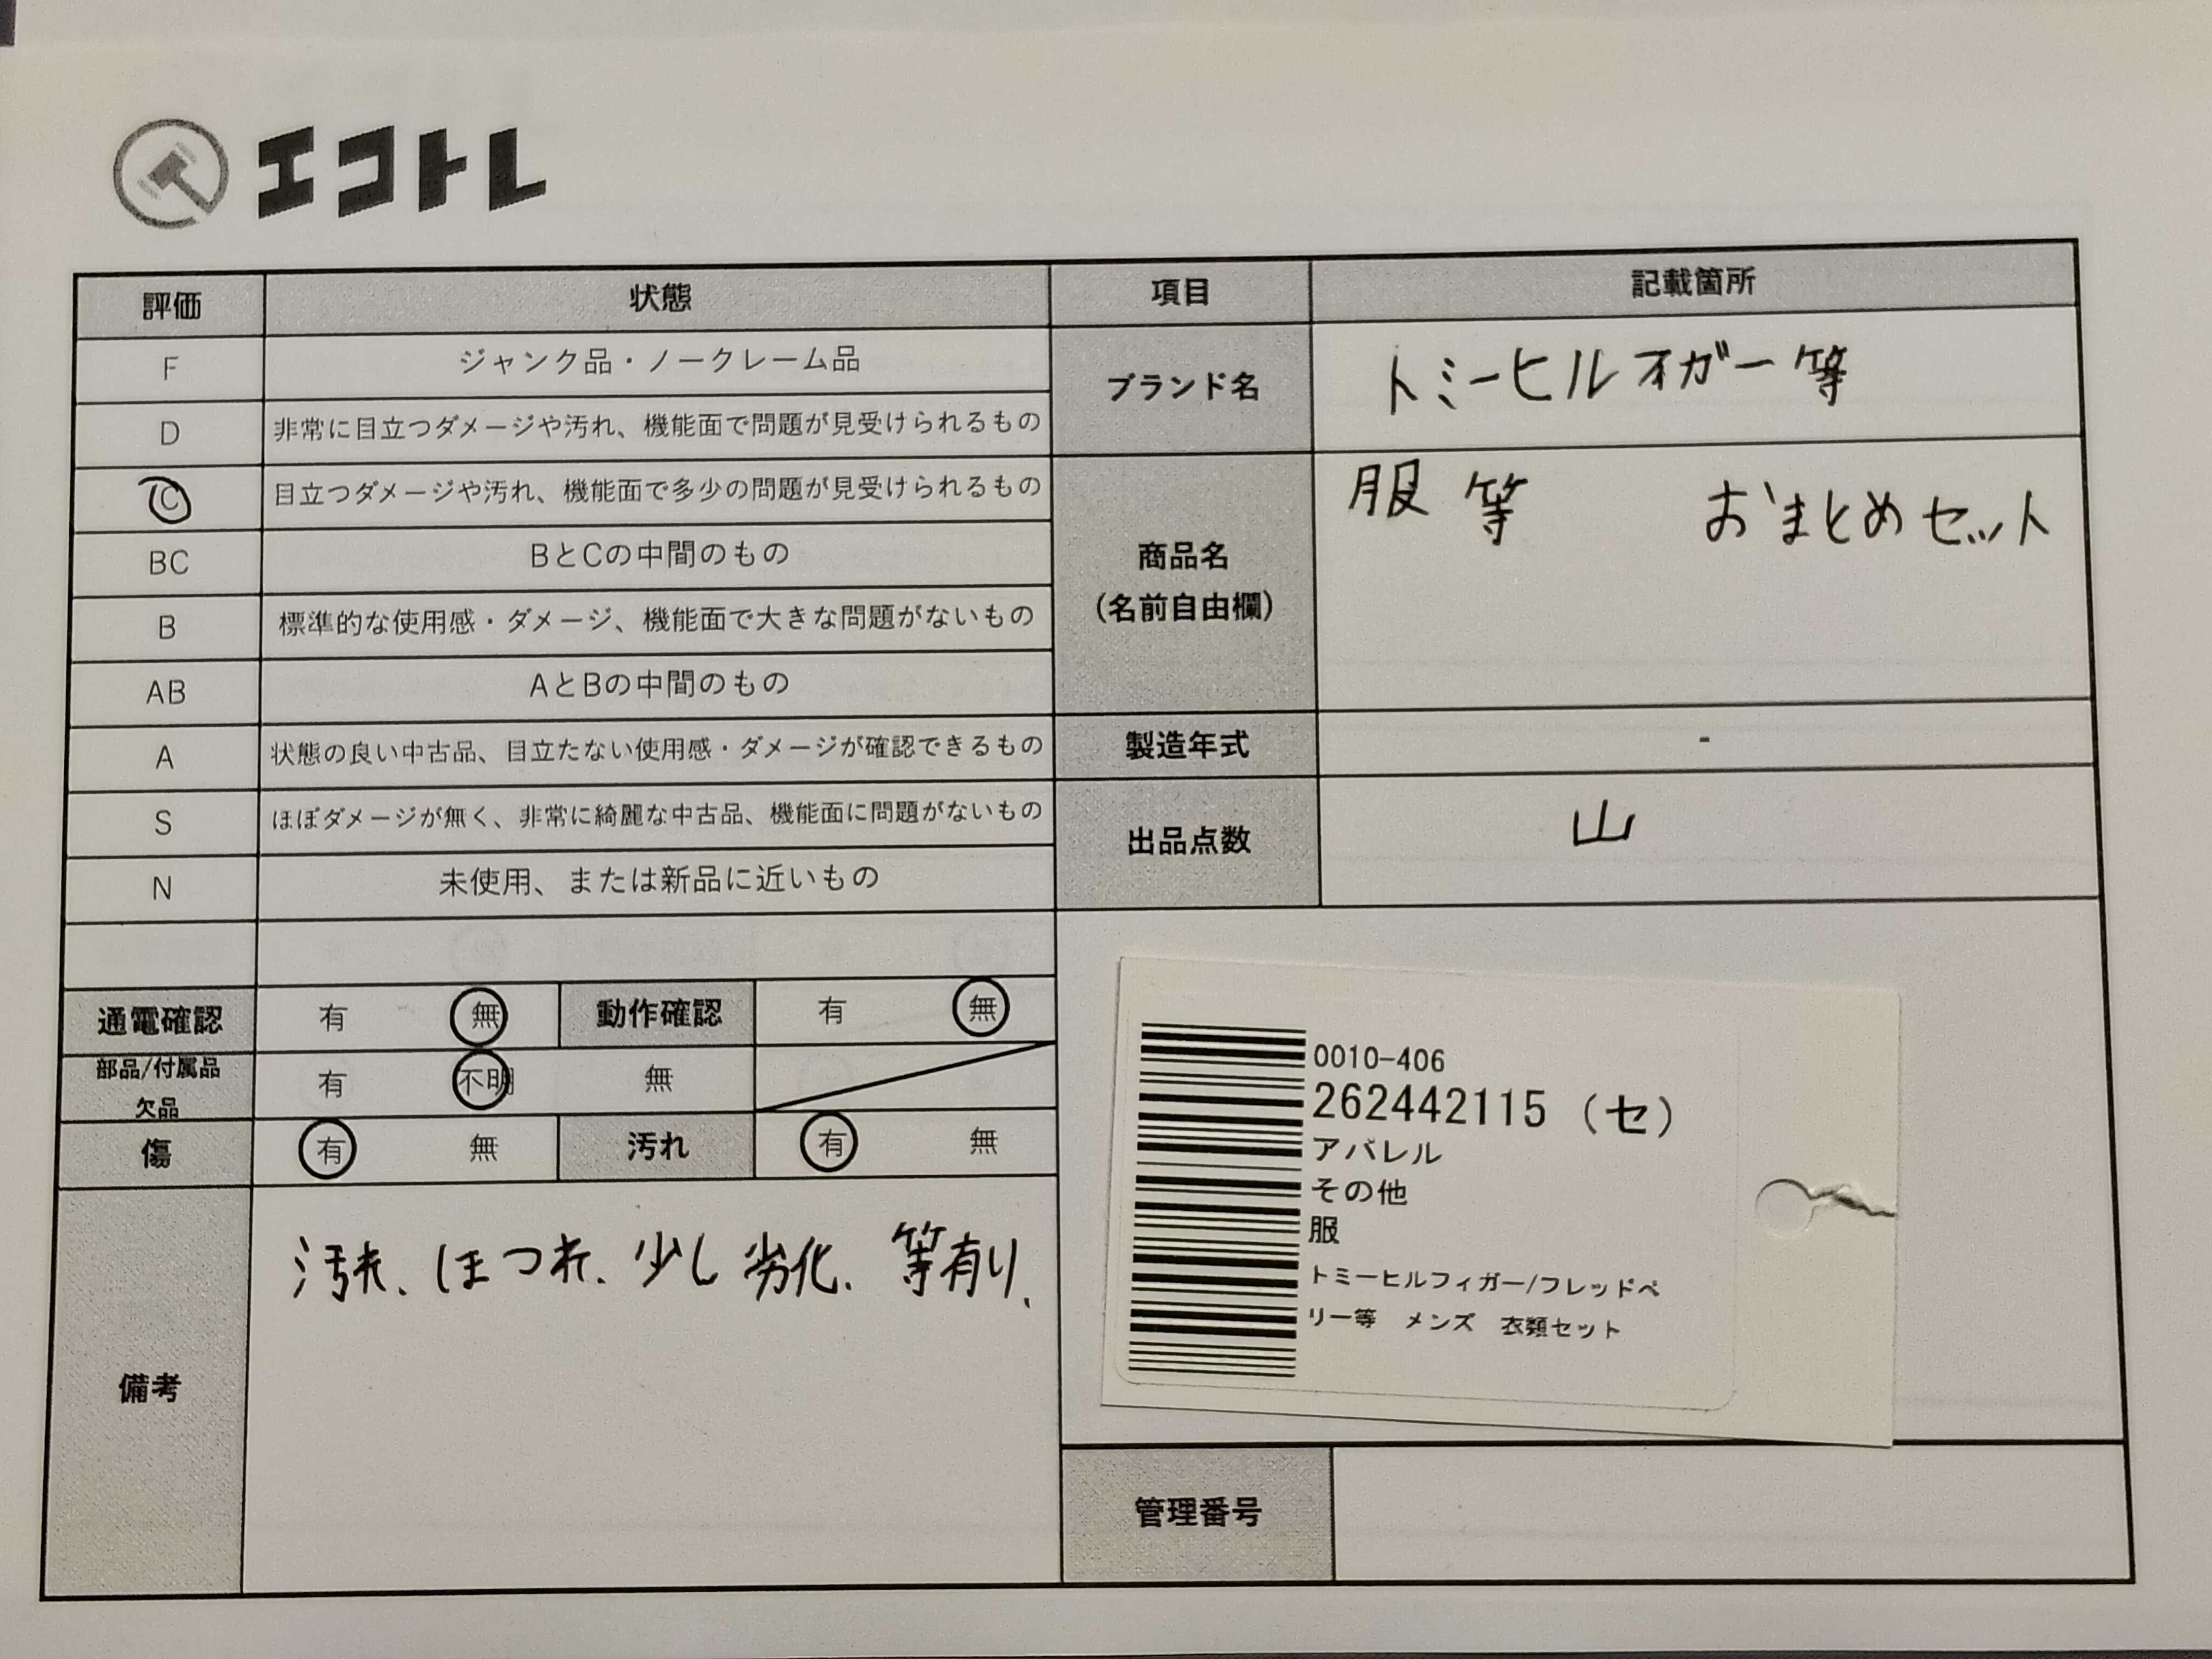 エコトレ
評価 状態 項目 記載箇所
F ジャンク品・ノークレーム品
D 非常に目立つダメージや汚れ、機能面で問題が見受けられるもの
C 目立つダメージや汚れ、機能面で多少の問題が見受けられるもの
BC BとCの中間のもの
B 標準的な使用感・ダメージ、機能面で大きな問題がないもの
AB AとBの中間のもの
A 状態の良い中古品、目立たない使用感・ダメージが確認できるもの
S ほぼダメージが無く、非常に綺麗な中古品、機能面に問題がないもの
N 未使用、または新品に近いもの
ブランド名 トミーヒルオガー等
商品名
(名前自由欄)
服等 おまとめセット
製造年式 -
出品点数 山
通電確認 有 無 動作確認 有 無
部品/付属品
欠品
有 不明 無
傷 有 無 汚れ 有 無
備考 汚れ、ほつれ、少し劣化、等有り、
0010-406
262442115 (セ)
アパレル
その他
服
トミーヒルフィガー/フレッドペ
リー等 メンズ 衣類セット
管理番号